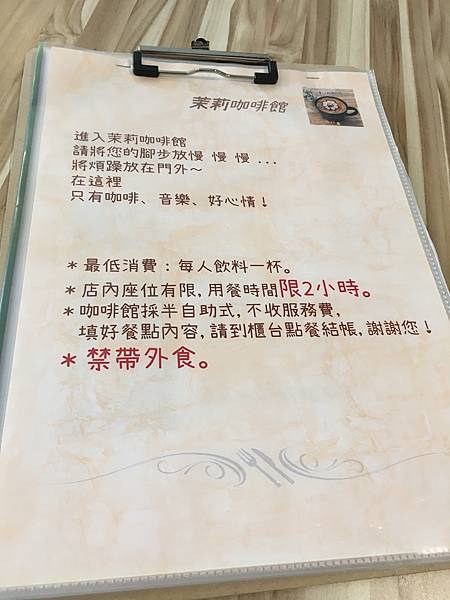 茉莉咖啡館
進入茉莉咖啡館
請將您的腳步放慢 慢 慢 ...
將煩躁放在門外～
在這裡
只有咖啡、音樂、好心情！
＊最低消費：每人飲料一杯。
＊店內座位有限, 用餐時間限2小時。
＊咖啡館採半自助式, 不收服務費,
填好餐點內容, 請到櫃台點餐結帳, 謝謝您！
＊禁帶外食。